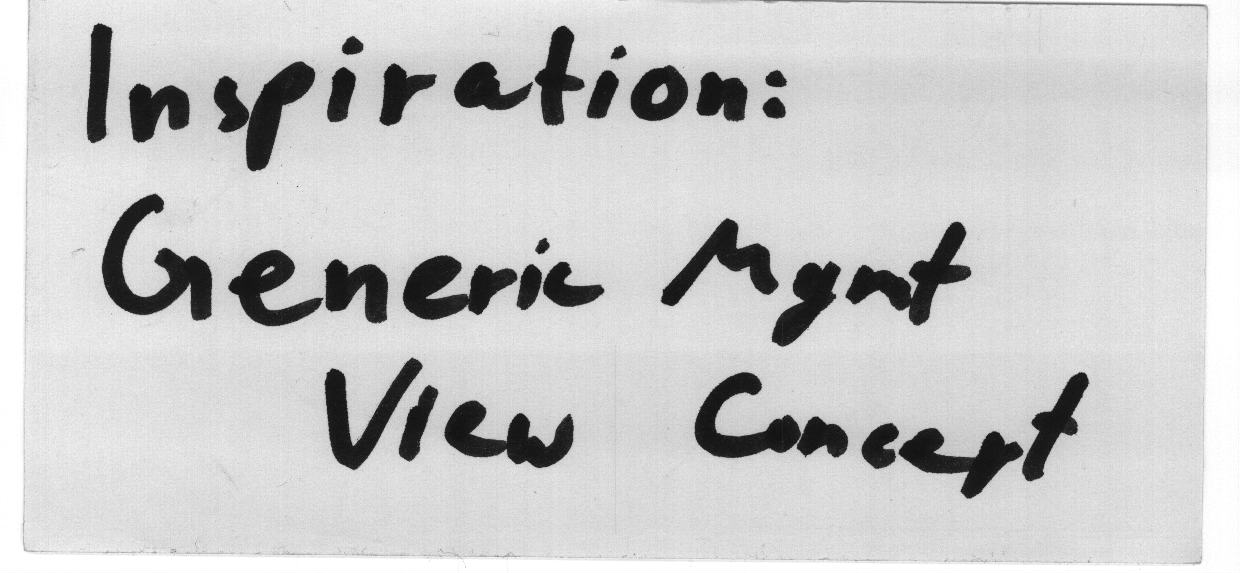 Inspiration:
Generic Mgmt
View Concept